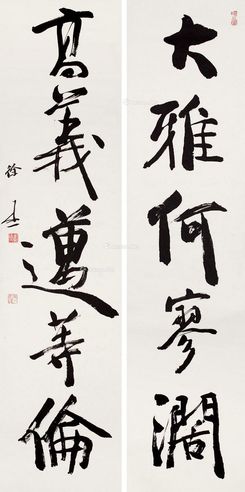 大雅何寥濶
高義邁等倫
徐